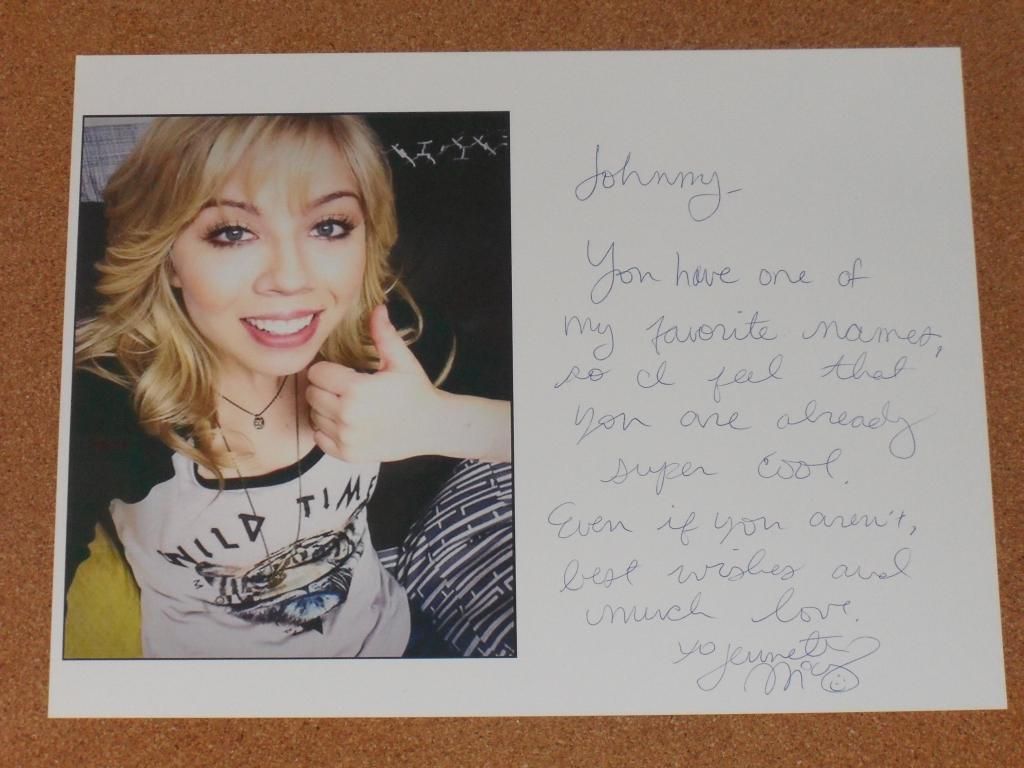 WILD TIME
Johnny-
You have one of
my favorite names,
so I feel that
you are already
super cool.
Even if you aren't,
best wishes and
much love.
xo Jennette
Mc